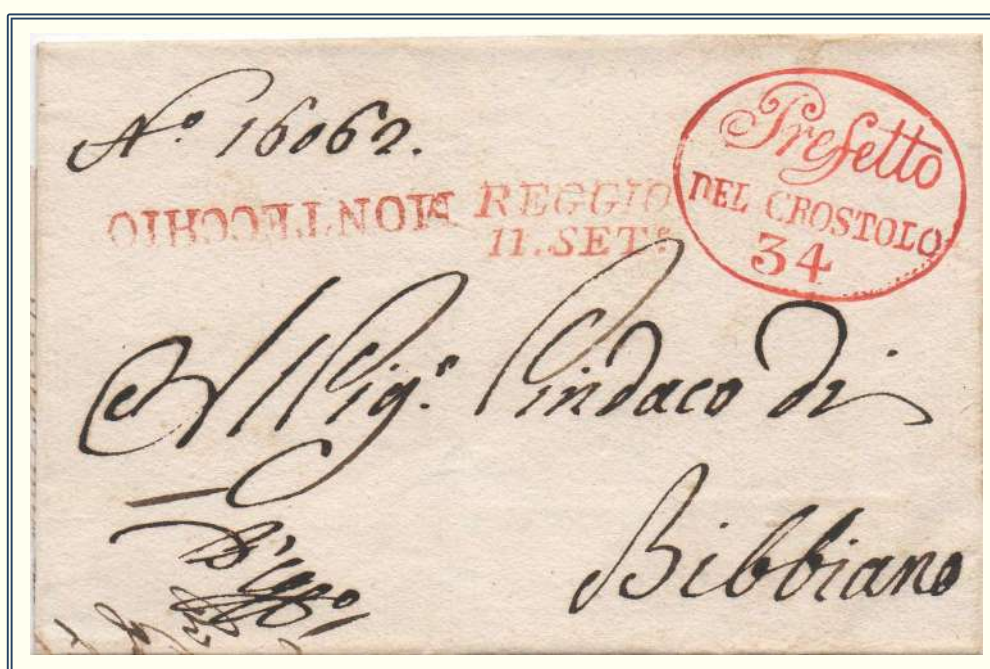 N.º 16062.
MONTECCHIO
REGGIO
11. SET.e
Prefetto
DEL CROSTOLO
34
Al Sig.r Sindaco di
Bibbiano